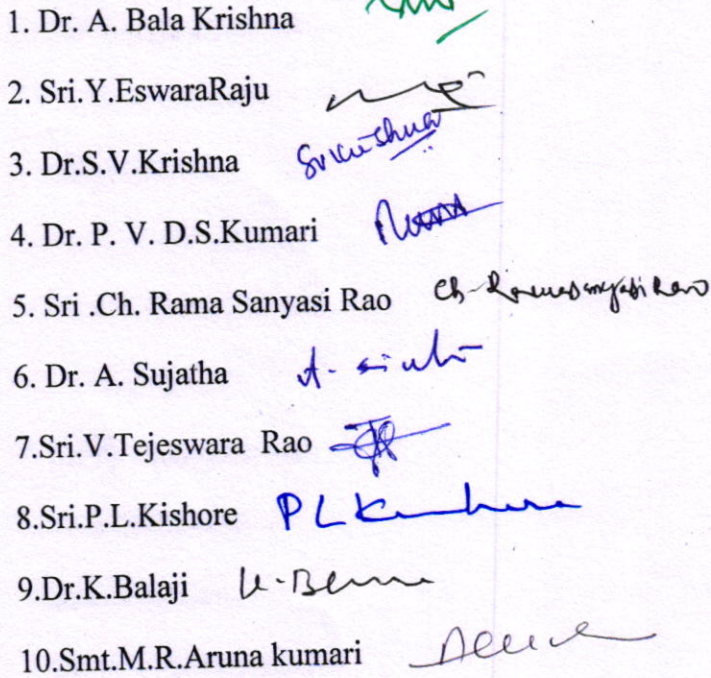 1. Dr. A. Bala Krishna
2. Sri.Y.EswaraRaju
3. Dr.S.V.Krishna Srikrishna
4. Dr. P. V. D.S.Kumari
5. Sri .Ch. Rama Sanyasi Rao Ch. Ramasanyasi Rao
6. Dr. A. Sujatha
7.Sri.V.Tejeswara Rao
8.Sri.P.L.Kishore P L Kishore
9.Dr.K.Balaji
10.Smt.M.R.Aruna kumari